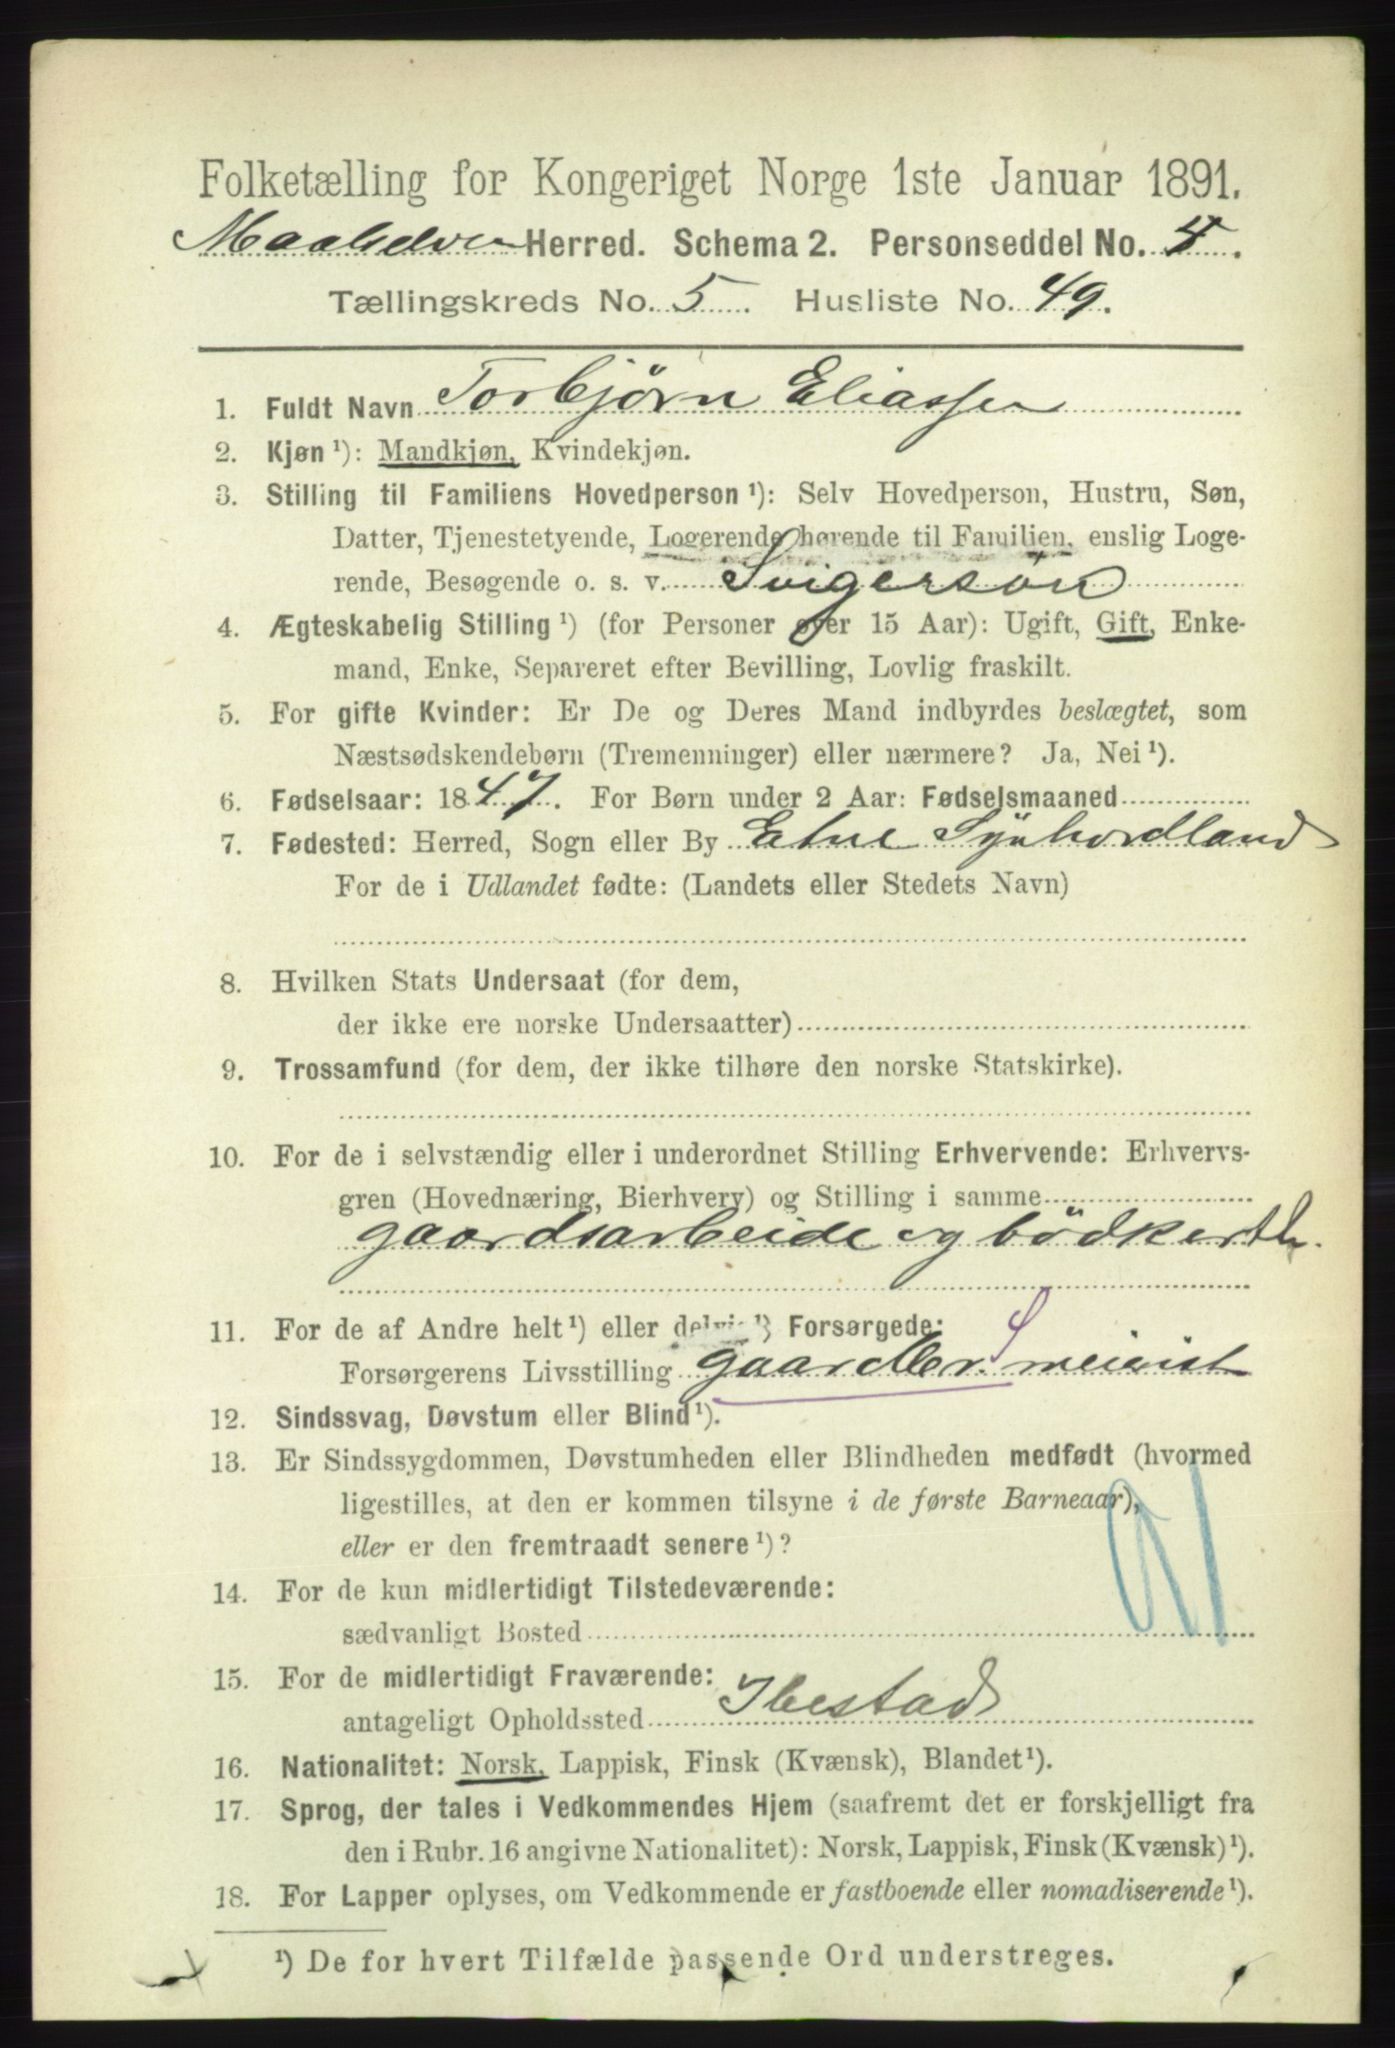 Folketælling for Kongeriget Norge 1ste Januar 1891.
Maalselven Herred. Schema 2. Personseddel No. 4.
Tællingskreds No. 5. Husliste No. 49.
1. Fuldt Navn Torbjørn Eliassen
2. Kjøn ¹): Mandkjøn, Kvindekjøn.
3. Stilling til Familiens Hovedperson ¹): Selv Hovedperson, Hustru, Søn,
Datter, Tjenestetyende, Logerende hørende til Familien, enslig Loge-
rende, Besøgende o. s. v. Svigersøn
4. Ægteskabelig Stilling ¹) (for Personer over 15 Aar): Ugift, Gift, Enke-
mand, Enke, Separeret efter Bevilling, Lovlig fraskilt.
5. For gifte Kvinder: Er De og Deres Mand indbyrdes beslægtet, som
Næstsødskendebørn (Tremenninger) eller nærmere? Ja, Nei ¹).
6. Fødselsaar: 1847. For Børn under 2 Aar: Fødselsmaaned
7. Fødested: Herred, Sogn eller By Etne Synhordland
For de i Udlandet fødte: (Landets eller Stedets Navn)
8. Hvilken Stats Undersaat (for dem,
der ikke ere norske Undersaatter)
9. Trossamfund (for dem, der ikke tilhøre den norske Statskirke).
10. For de i selvstændig eller i underordnet Stilling Erhvervende: Erhvervs-
gren (Hovednæring, Bierhverv) og Stilling i samme
gaardsarbeide og bödker
11. For de af Andre helt ¹) eller delvis ¹) Forsørgede:
Forsørgerens Livsstilling gaardbr. S
12. Sindssvag, Døvstum eller Blind ¹).
13. Er Sindssygdommen, Døvstumheden eller Blindheden medfødt (hvormed
ligestilles, at den er kommen tilsyne i de første Barneaar),
eller er den fremtraadt senere ¹)?
14. For de kun midlertidigt Tilstedeværende:
sædvanligt Bosted
15. For de midlertidigt Fraværende:
antageligt Opholdssted Ibestad
16. Nationalitet: Norsk, Lappisk, Finsk (Kvænsk), Blandet ¹).
17. Sprog, der tales i Vedkommendes Hjem (saafremt det er forskjelligt fra
den i Rubr. 16 angivne Nationalitet): Norsk, Lappisk, Finsk (Kvænsk) ¹).
18. For Lapper oplyses, om Vedkommende er fastboende eller nomadiserende ¹).
¹) De for hvert Tilfælde passende Ord understreges.